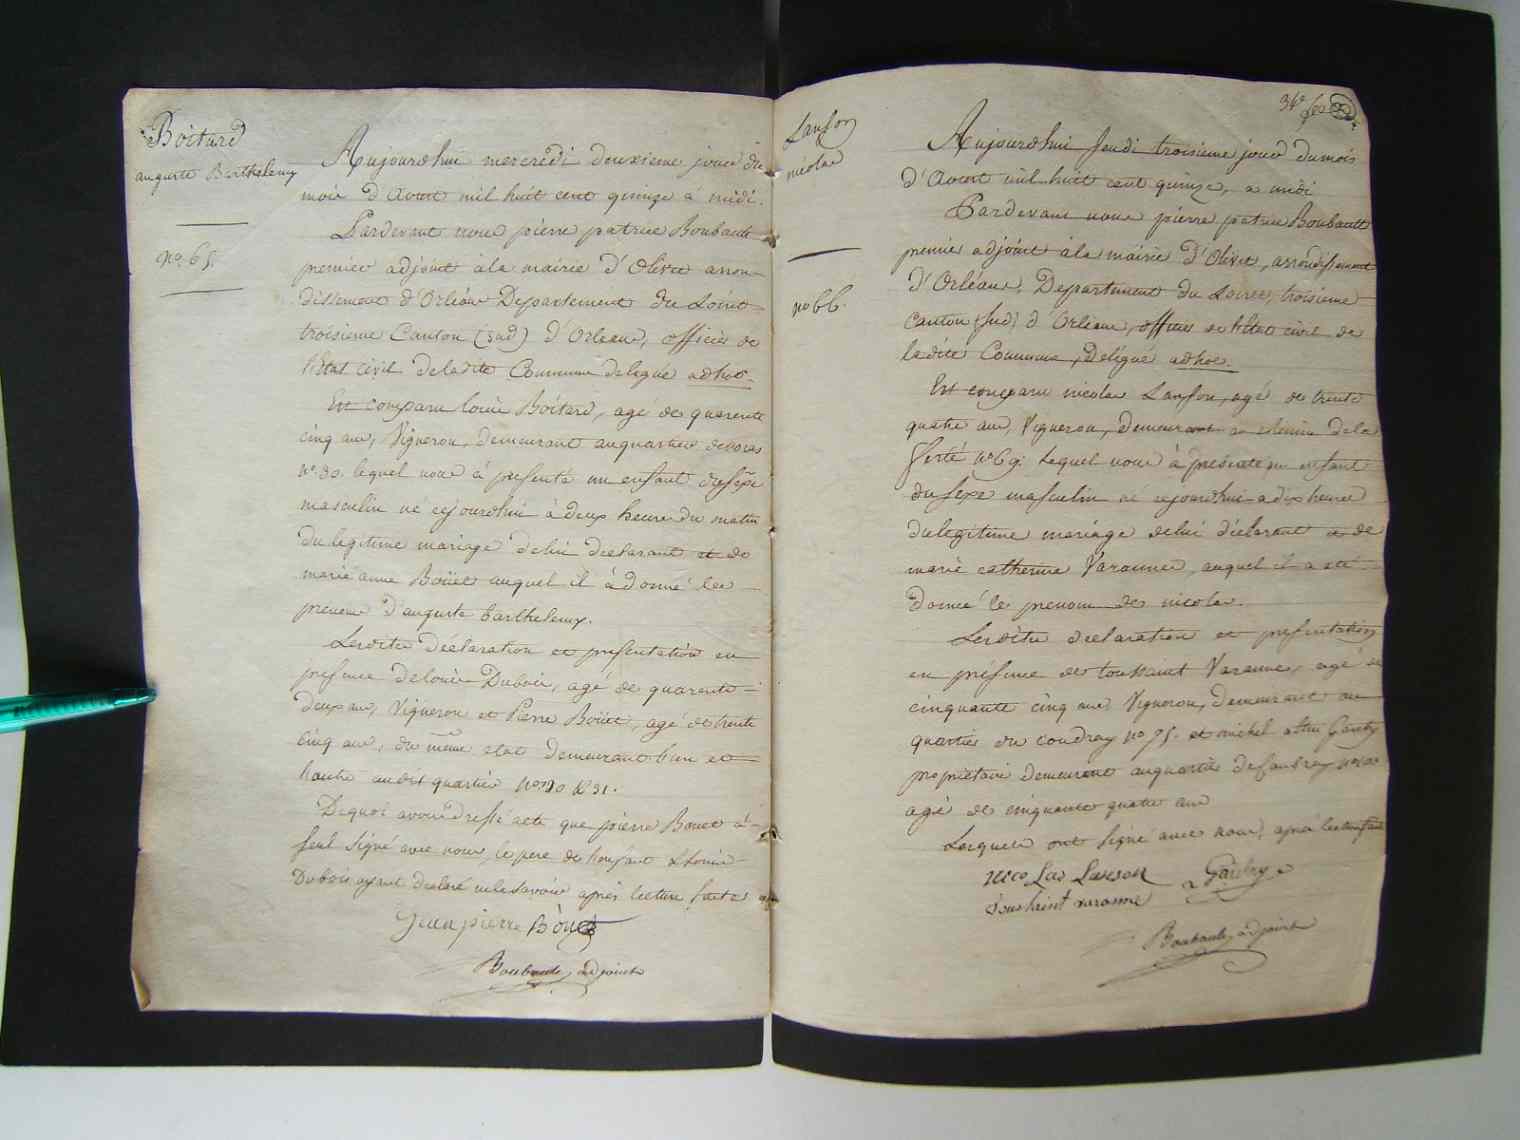 Boitard
auguste Barthelemy
no. 65.
Aujourdhui mercredi deuxieme jour du
mois d'Avout mil huit cent quinze à midi.
Pardevant nous pierre patrice Boubault
premier adjoint à la mairie d'Olivet arron-
dissement d'Orléans Departement du Loiret
troisieme Canton (sud) d'Orleans, officier de
l'Etat civil de ladite Commune delegué adhoc.
Est comparu louis Boitard, agé de quarente
cinq ans, Vigneron, demeurant auquartier
no. 30. lequel nous à presenté un enfant dusexe
masculin né cejourdhui à deux heures du matin
du legitime mariage delui declarant et de
marie anne Boüet auquel il à donné les
prenoms d'auguste barthelemy.
Lesdites déclaration et presentation en
presence delouis Dubois, agé de quarente
deux ans, Vigneron et Pierre Boüet, agé de trente
cinq ans, du même etat demeurant l'un et
l'autre audit quartier nos 30 & 31.
Dequoi avons dressé acte que pierre Bouet à
seul signé avec nous, le pere de l'enfant & louis
Dubois ayant declaré nelesavoir après lecture faite
Jean pierre Bòuet
Boubault, adjoint
Lanson
nicolas
no 66.
34e
Aujourdhui Jeudi troisieme jour dumois
d'Avout mil huit cent quinze, a midi
Pardevant nous pierre patrice Boubault
premier adjoint àla mairie d'Olivet, arrondissement
d'Orléans, Departement du Loiret, troisieme
Canton (Sud) d'Orléans, officier de l'état civil de
ladite Commune, delégué adhoc.
Est comparu nicolas Lanson, agé de trente
quatre ans, Vigneron, demeurant au chemin dela
ferté no 69. Lequel nous à presenté un enfant
du sexe masculin né cejourdhui a dix heures
du legitime mariage delui déclarant et de
marie catherine Varanne, auquel il a été
donné le prenom de nicolas.
Lesdites declaration et presentation
en présence de toussaint Varanne, agé de
cinquante cinq ans Vigneron, demeurant au
quartier du coudray no 75. et michel Gaudry
propriétaire demeurant auquartier
agé de cinquante quatre ans
Lesquels ont signé avec nous, après lecture faite
nico Las Lanson Gaudry
toussaint varanne
Boubault, adjoint